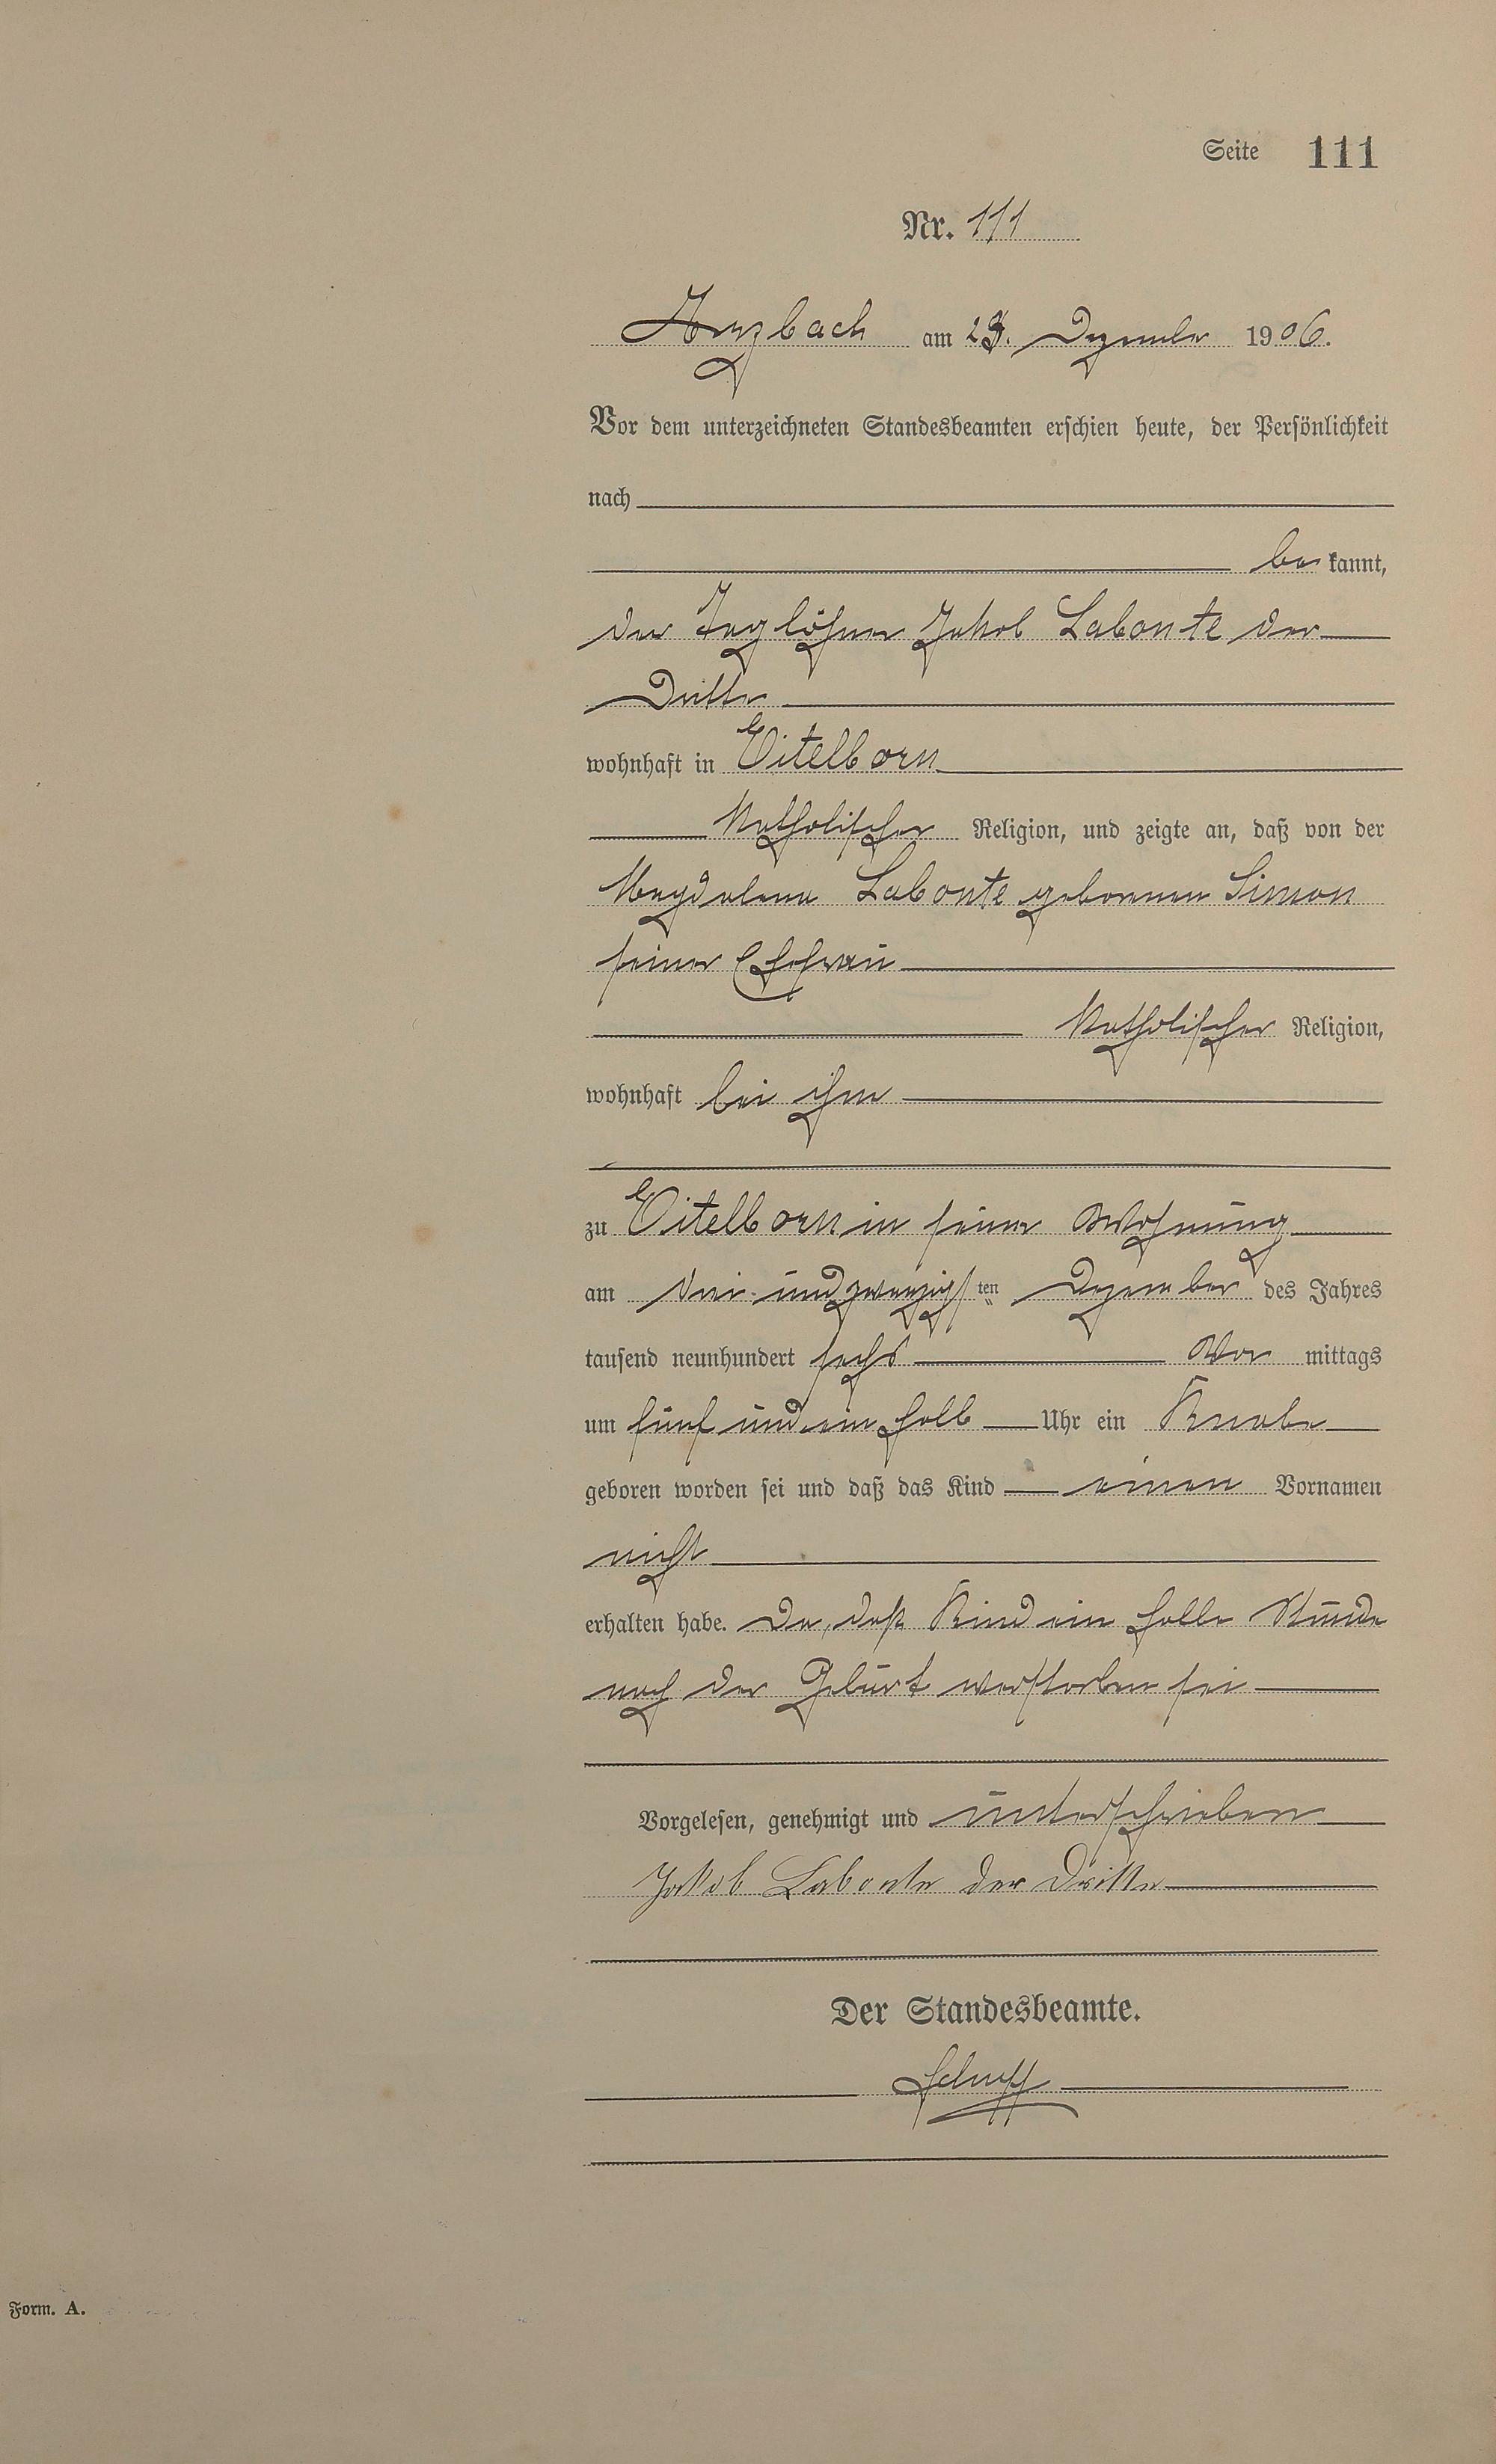 Seite 111
Nr. 111
Arzbach am 24. Dezember 1906.
Vor dem unterzeichneten Standesbeamten erschien heute, der Persönlichkeit
nach
be kannt,
der Taglöhner Jakob Labonte der
Dritte
wohnhaft in Eitelborn
Katholischer Religion, und zeigte an, daß von der
Magdalena Labonte geborenen Simon
seiner Ehefrau
Katholischer Religion,
wohnhaft bei ihm
zu Eitelborn in seiner Wohnung
am drei und zwanzigsten Dezember des Jahres
tausend neunhundert sechs Vor mittags
um fünf und ein halb Uhr ein Knabe
geboren worden sei und daß das Kind einen Vornamen
nicht
erhalten habe. Da, daß Kind ein halbe Stunde
nach der Geburt verstorben sei
Vorgelesen, genehmigt und unterschrieben
Jakob Labonte der Dritte
Der Standesbeamte.
Form. A.